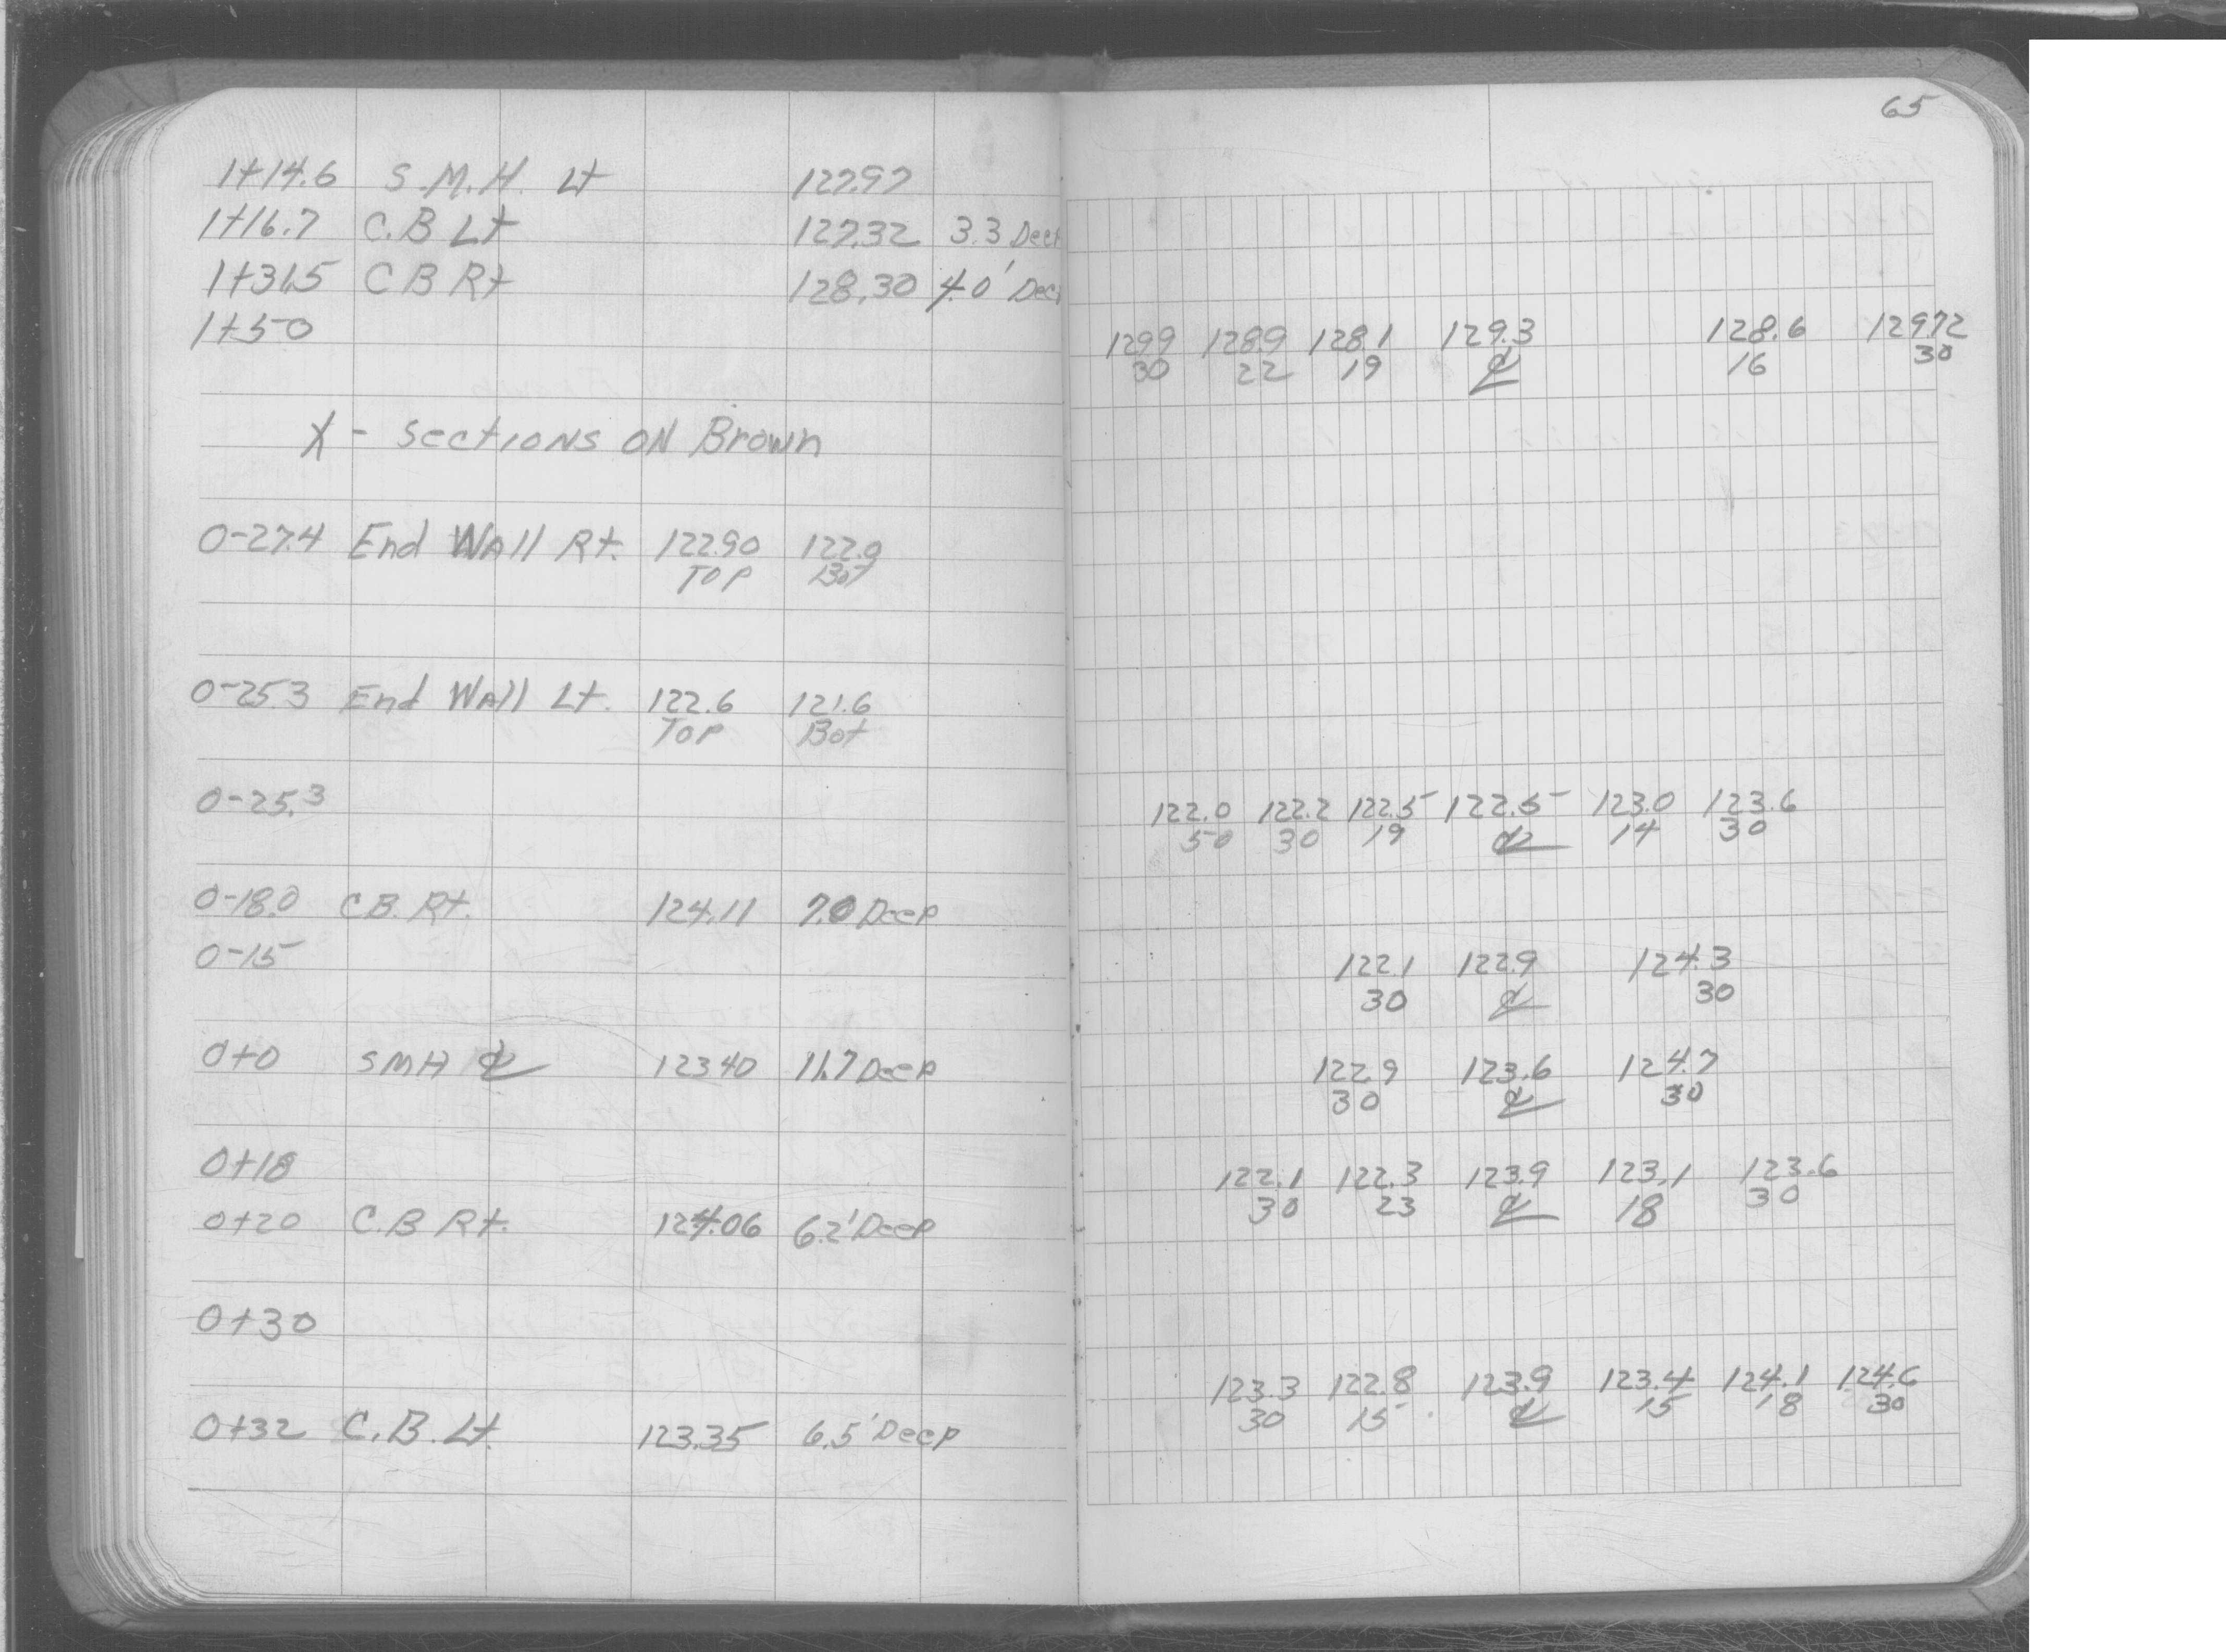 65
1+14.6 S.M.H. Lt 127.97
1+16.7 C.B Lt 127.32 3.3 Deep
1+31.5 C B Rt 128.30 4.0' Deep
1+50
129.9 128.9 128.1 129.3 128.6 129.72
30 22 19 ℄ 16 30
X - Sections ON Brown
0-27.4 End Wall Rt. 122.90 122.0
TOP Bot
0-25.3 End Wall Lt. 122.6 121.6
TOP Bot
0-25.3
122.0 122.2 122.5 122.5 123.0 123.6
50 30 19 ℄ 14 30
0-18.0 C.B. Rt. 124.11 7.0 Deep
0-15
122.1 122.9 124.3
30 ℄ 30
0+0 SMH ℄ 123.40 11.7 Deep
122.9 123.6 124.7
30 ℄ 30
0+18
122.1 122.3 123.9 123.1 123.6
30 23 ℄ 18 30
0+20 C.B Rt. 124.06 6.2' Deep
0+30
123.3 122.8 123.9 123.4 124.1 124.6
30 15 ℄ 15 18 30
0+32 C.B. Lt. 123.35 6.5' Deep